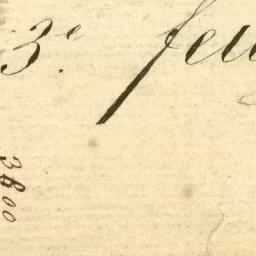 3.e feu
3800